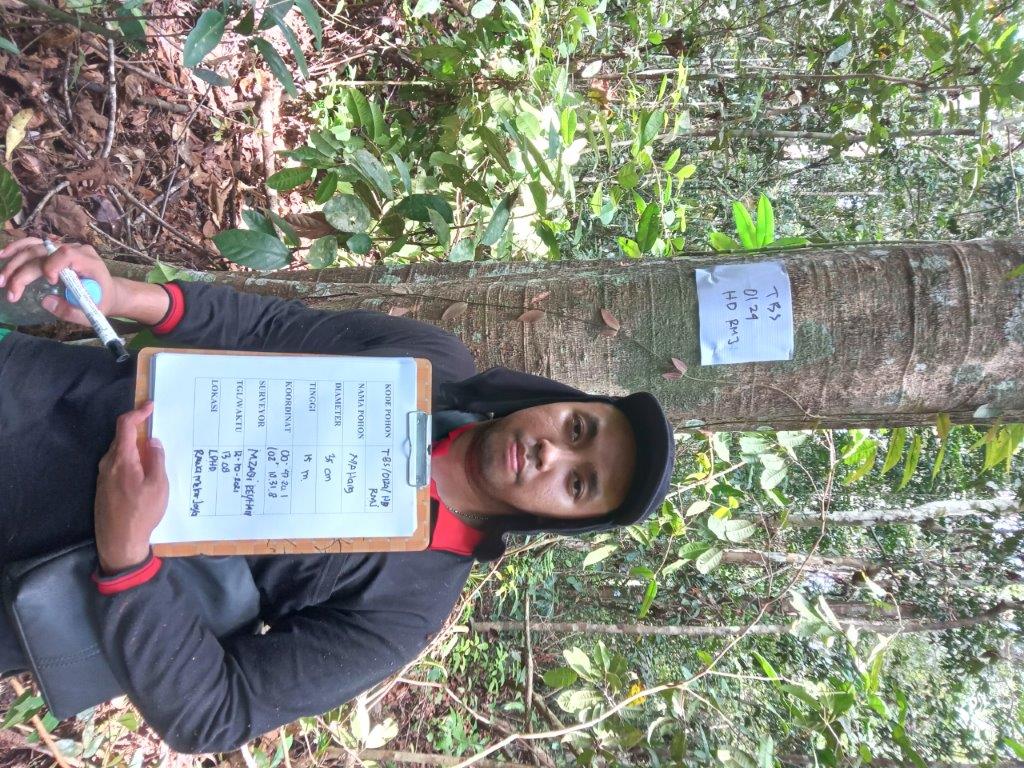 TBS
0124
HD RMJ
KODE POHON TBS/0124/HD
RMJ
NAMA POHON
DIAMETER 35 cm
TINGGI 15 m
KOORDINAT 00° 47. 20. 1
102° 10. 31. 8
SURVEYOR M. ZAQI REYHAN
TGL/WAKTU 12-10-2021
13.08
LOKASI LPHD
Rawa Mekar Jaya